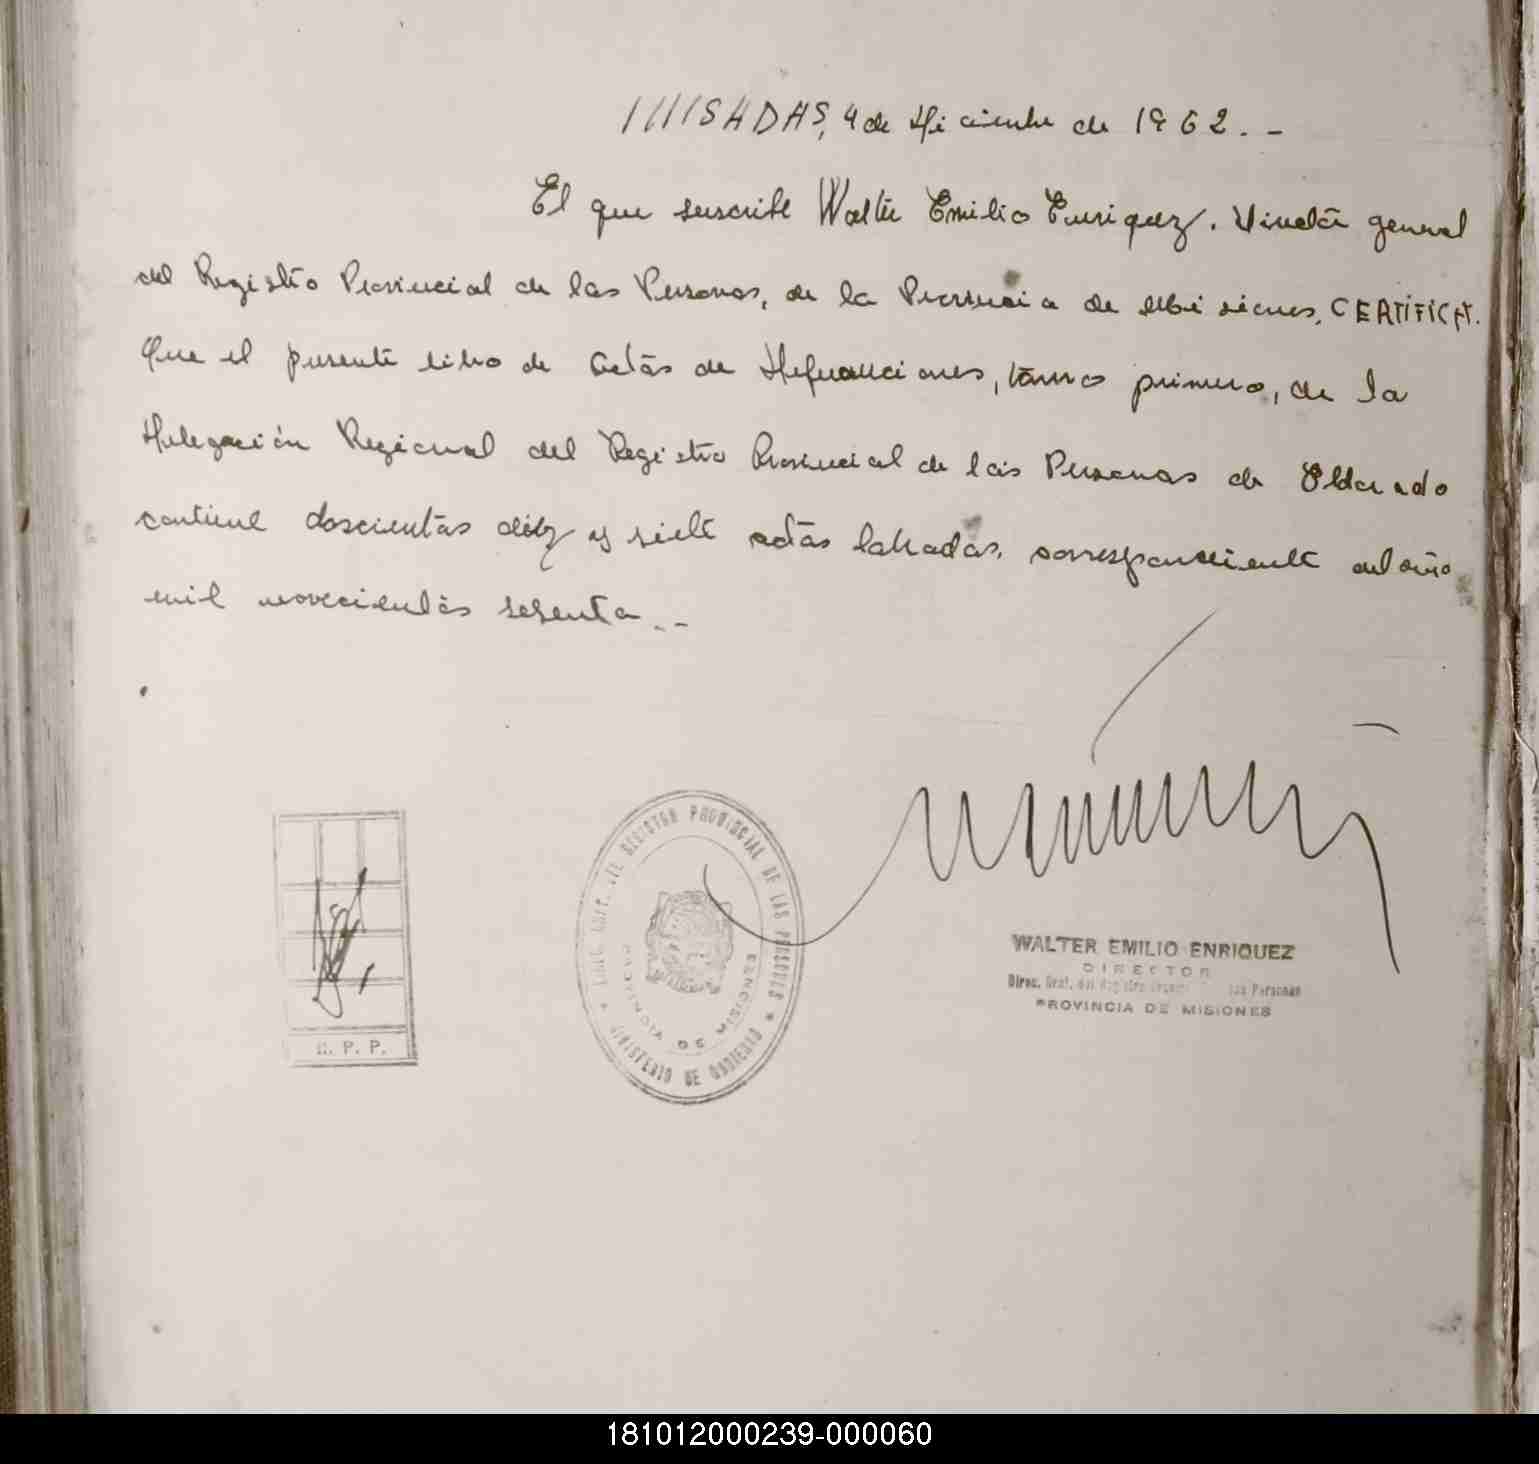 ////SADAS, 4 de diciembre de 1962.-
El que suscribe Walter Emilio Enriquez. Director general
del Registro Provincial de las Personas, de la Provincia de Misiones, CERTIFICA.
Que el presente libro de Actas de Defunciones, tomo primero, de la
Delegación Regional del Registro Provincial de las Personas de Eldorado
contiene doscientas diez y siete actas labradas, correspondiente al año
mil novecientos sesenta.--
R. P. P.
DEL REGISTRO PROVINCIAL DE LAS PERSONAS
MINISTERIO DE GOBIERNO
PROVINCIA DE MISIONES
WALTER EMILIO ENRIQUEZ
DIRECTOR
Direc. Gral. del Registro Las Personas
PROVINCIA DE MISIONES
181012000239-000060